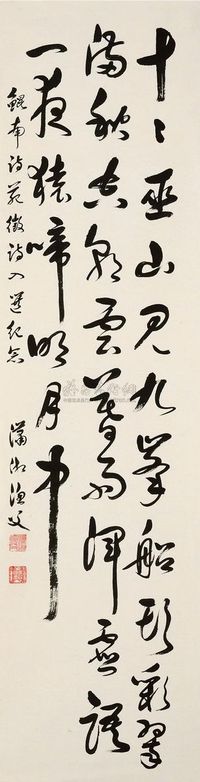 十二巫山見九峯船頭彩翠
滿秋空朝雲暮雨渾虛語
一夜猿啼明月中
鯤南詩苑徵詩入選紀念
瀟湘漁父